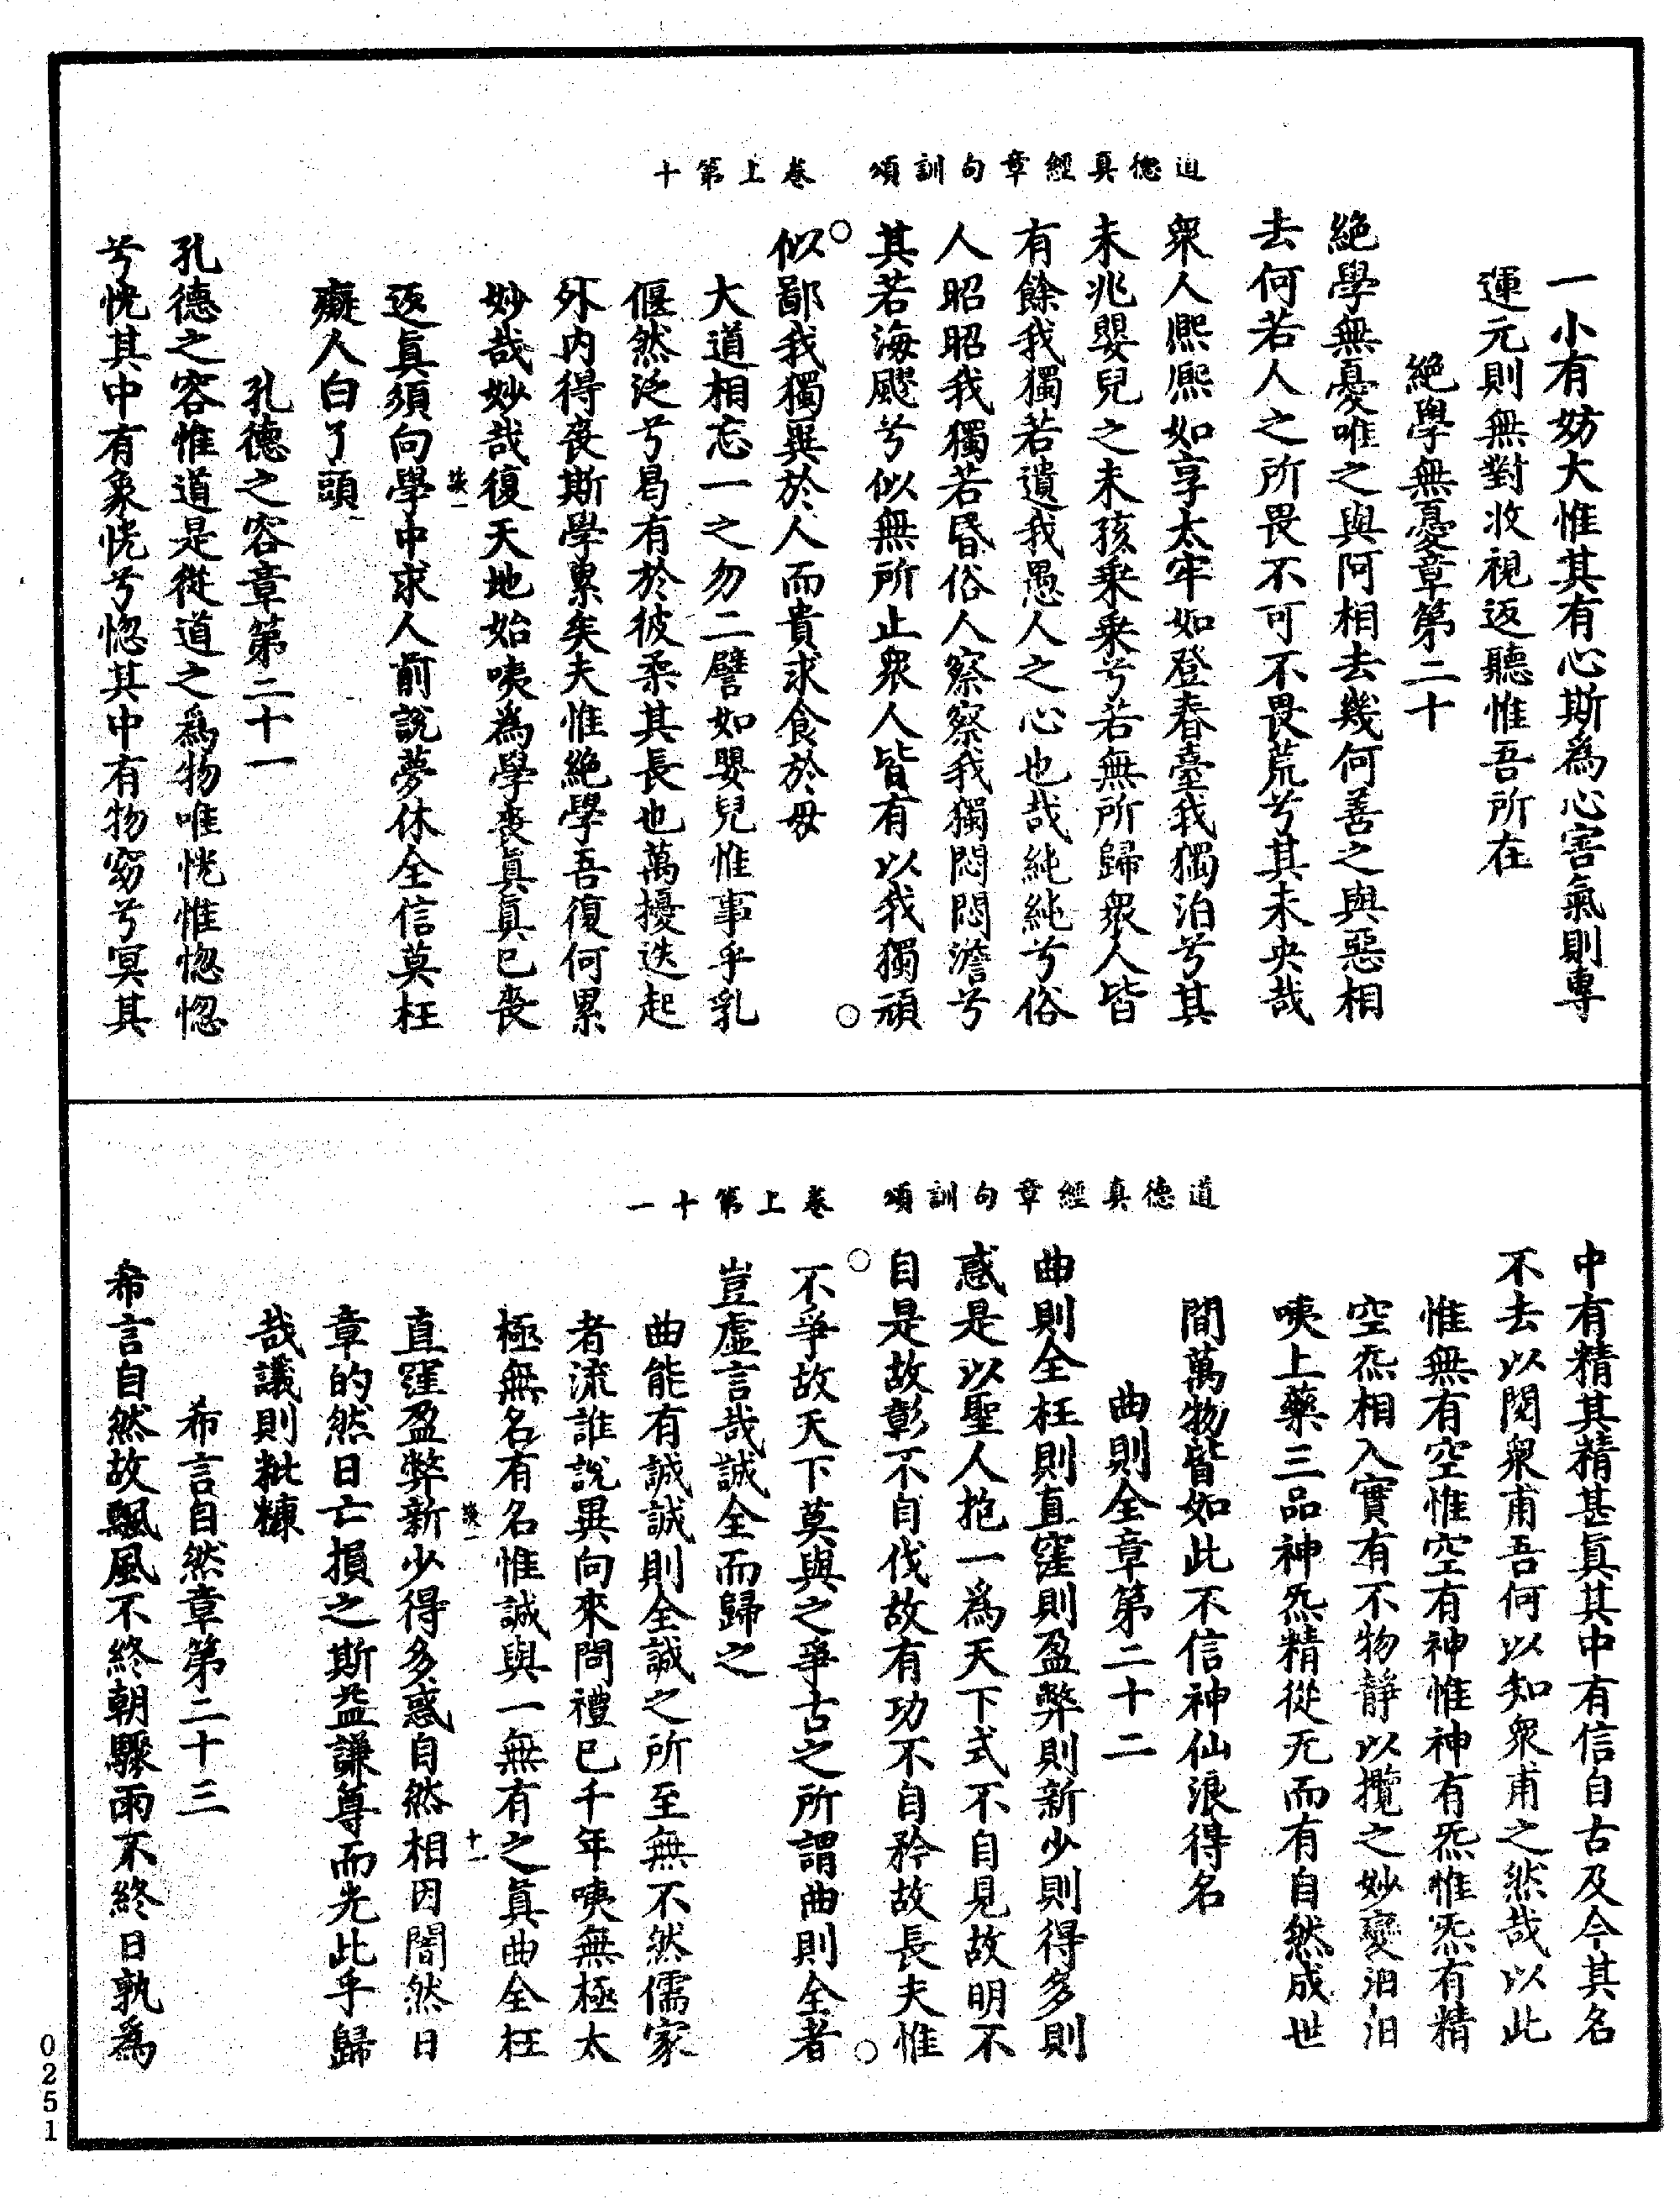 道德真經章句訓頌　卷上第十
一小有妨大惟其有心斯爲心害氣則專
運元則無對收視返聽惟吾所在
絕學無憂章第二十
絕學無憂唯之與阿相去幾何善之與惡相
去何若人之所畏不可不畏荒兮其未央哉
衆人熙熙如享太牢如登春臺我獨泊兮其
未兆嬰兒之未孩乘乘兮若無所歸衆人皆
有餘我獨若遺我愚人之心也哉純純兮俗
人昭昭我獨若昏俗人察察我獨悶悶澹兮
其若海飂兮似無所止衆人皆有以我獨頑
○　○
似鄙我獨異於人而貴求食於母
大道相忘一之勿二譬如嬰兒惟事乎乳
偃然泛兮曷有於彼柔其長也萬擾迭起
外內得喪斯學累矣夫惟絕學吾復何累
妙哉妙哉復天地始咦為學喪眞眞已喪
談一
返眞須向學中求人前說夢休全信莫枉
癡人白了頭
一
孔德之容章第二十一
孔德之容惟道是從道之爲物唯恍惟惚惚
兮恍其中有象恍兮惚其中有物窈兮冥其
道德真經章句訓頌　卷上第十一
中有精其精甚眞其中有信自古及今其名
不去以閱衆甫吾何以知衆甫之然哉以此
惟無有空惟空有神惟神有炁惟炁有精
空炁相入實有不物靜以攬之妙變汩汩
咦上藥三品神炁精從无而有自然成世
間萬物皆如此不信神仙浪得名
曲則全章第二十二
曲則全枉則直窪則盈弊則新少則得多則
惑是以聖人抱一爲天下式不自見故明不
自是故彰不自伐故有功不自矜故長夫惟
○　○
不爭故天下莫與之爭古之所謂曲則全者
豈虛言哉誠全而歸之
曲能有誠誠則全誠之所至無不然儒家
者流誰說異向來問禮已千年咦無極太
極無名有名惟誠與一無有之眞曲全枉
談一　十一
直窪盈弊新少得多惑自然相因闇然日
章的然日亡損之斯益謙尊而光此乎歸
哉議則粃糠
希言自然章第二十三
希言自然故飄風不終朝驟雨不終日孰爲
0251